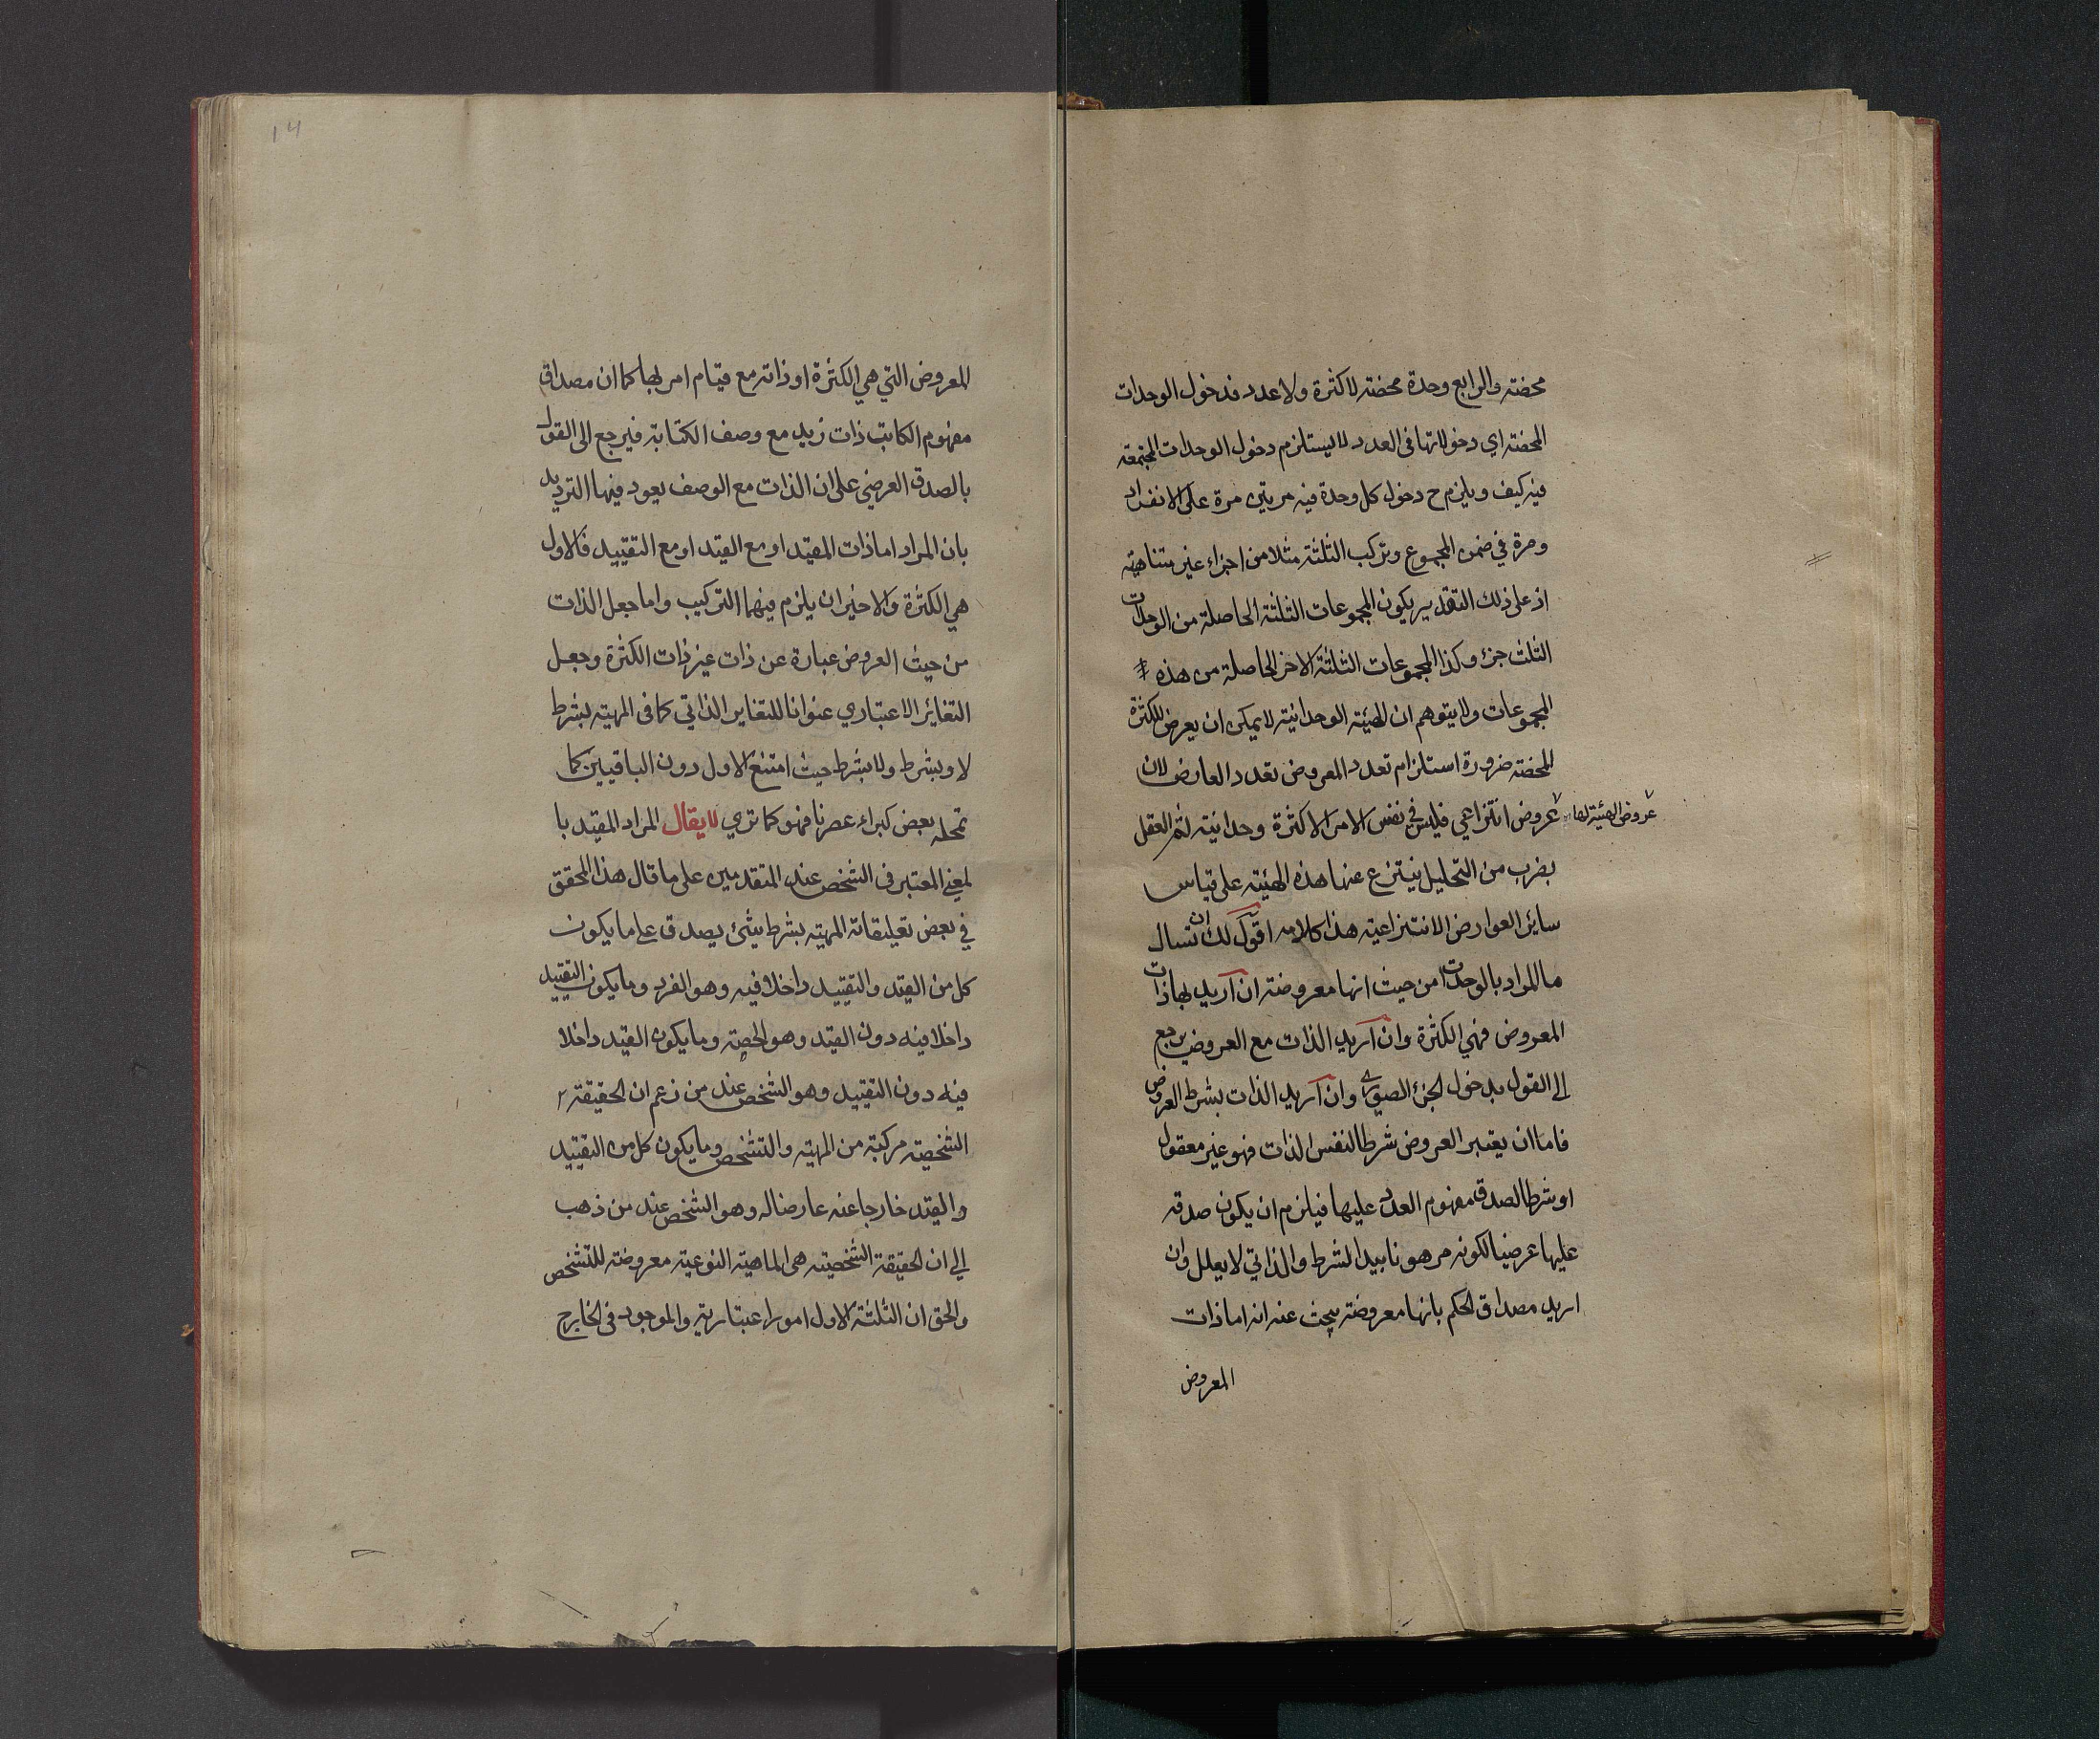 محضته والرابع وحدة محضته لا كثرة ولا عدد فدخول الوحدات
المحضته اي دخولاتها في العدد لا يستلزم دخول الوحدات المجتمعه
فيه كيف ويلزم ح دخول كل وحدة فيه مرتين مرة على الانفراد
ومرة في ضمن المجموع وتركب الثلثة مثلا من اجزاء غير متناهيته
اذ على ذلك التقدير يكون المجموعات الثلثة الحاصلة من الوحدات
الثلث جزء وكذا المجموعات الثلثة الاخر الحاصلة من هذه
المجموعات ولا يتوهم ان الهيئته الوحدانيته لا يمكن ان يعرض للكثرة
المحضته ضرورة استلزام تعدد المعروض تعدد العارض لان
عروض الهيئته لها
عروض انتزاعي فليس في نفس الامر الا كثرة وحدانيته لثم العقل
بضرب من التحليل ينتزع عنها هذه الهيئته على قياس
ساير العوارض الانتزاعيته هذا كلامه اقول لك ان تسال
ما المراد بالوحدات من حيث انها معروضته ان اريد بها ذات
المعروض فهي الكثرة وان اريد الذات مع العروض يرجع
الى القول بدخول الجزء الصوري وان اريد الذات بشرط العروض
فاما ان يعتبر العروض شرطا لنفس الذات فهو غير معقول
او شرطا لصدق مفهوم العدد عليها فيلزم ان يكون صدقه
عليها عرضيا لكونه مرهونا بيد الشرط والذاتي لا يعلل وان
اريد مصداق الحكم بانها معروضته يبحث عنه انه اما ذات
المعروض
١٤
المعروض التي هي الكثرة او ذاته مع قيام امر بها كما ان مصداق
مفهوم الكاتب ذات زيد مع وصف الكتابة فيرجع الى القول
بالصدق العرضي على ان الذات مع الوصف يعود فيها الترديد
بان المراد اما ذات المقيد او مع القيد او مع التقييد فالاول
هي الكثرة والاخيران يلزم فيهما التركيب واما جعل الذات
من حيث العروض عبارة عن ذات غير ذات الكثرة وجعل
التغائر الاعتباري عنوانا للتغاير الذاتي كما في المهيته بشرط
لا وبشرط ولا بشرط حيث امتنع الاول دون الباقيين كما
تمحله بعض كبراء عصرنا فهو كما تري لا يقال المراد المقيد با
لمعني المعتبر في الشخص عند المتقدمين على ما قال هذا المحقق
في بعض تعليقاته المهيته بشرط شئ يصدق على ما يكون
كل من القيد والتقييد داخلا فيه وهو الفرد وما يكون التقييد
داخلا فيه دون القيد وهو الحصته وما يكون القيد داخلا
فيه دون التقييد وهو الشخص عند من زعم ان الحقيقته
الشخصيته مركبته من المهيته والتشخص وما يكون كل من التقييد
والقيد خارجا عنه عارضا له وهو الشخص عند من ذهب
الي ان الحقيقة الشخصيته هي الماهيته النوعيته معروضته للتشخص
والحق ان الثلثة الاول امور اعتباريته والموجود في الخارج